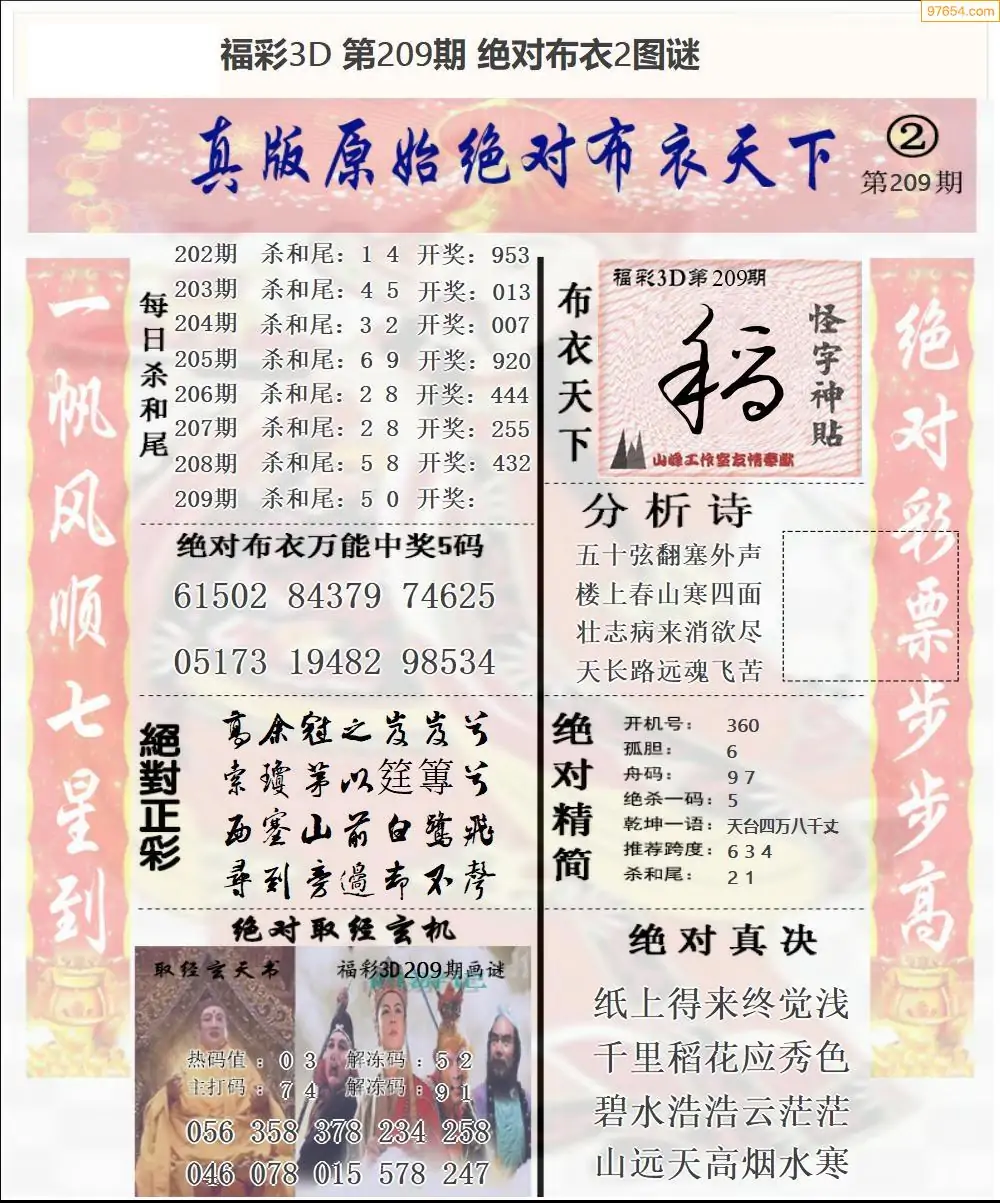 97654.com
福彩3D 第209期 绝对布衣2图谜
真版原始绝对布衣天下
②
第209期
一帆风顺七星到
每日杀和尾
202期 杀和尾：1 4 开奖：953
203期 杀和尾：4 5 开奖：013
204期 杀和尾：3 2 开奖：007
205期 杀和尾：6 9 开奖：920
206期 杀和尾：2 8 开奖：444
207期 杀和尾：2 8 开奖：255
208期 杀和尾：5 8 开奖：432
209期 杀和尾：5 0 开奖：
绝对布衣万能中奖5码
61502 84379 74625
05173 19482 98534
絕對正彩
高余冠之岌岌兮
索瓊茅以筳篿兮
西塞山前白鹭飛
尋到旁邊却不聲
绝对取经玄机
取经玄天书
福彩3D209期画谜
热码值：0 3 解冻码：5 2
主打码：7 4 解冻码：9 1
056 358 378 234 258
046 078 015 578 247
布衣天下
福彩3D第209期
稻
怪字神贴
山峰工作室友情奉献
分析诗
五十弦翻塞外声
楼上春山寒四面
壮志病来消欲尽
天长路远魂飞苦
绝对精简
开机号：360
孤胆：6
舟码：9 7
绝杀一码：5
乾坤一语：天台四万八千丈
推荐跨度：6 3 4
杀和尾：2 1
绝对真决
纸上得来终觉浅
千里稻花应秀色
碧水浩浩云茫茫
山远天高烟水寒
绝对彩票步步高